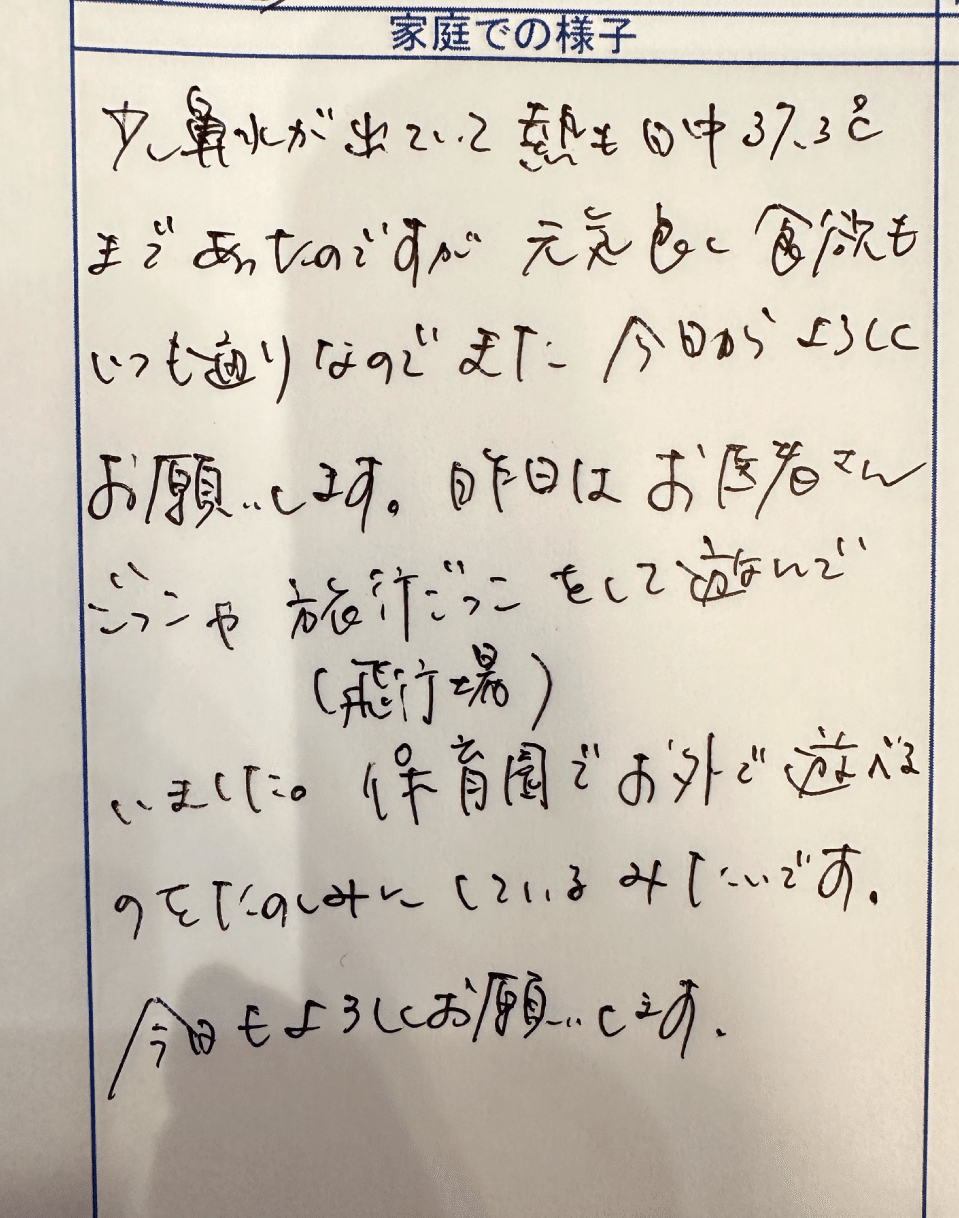 家庭での様子
少し鼻水が出ていて熱も日中37.3℃
まであったのですが元気良く食欲も
いつも通りなのでまた今日からよろしく
お願いします。昨日はお医者さん
ごっこや旅行ごっこをして遊んで
(飛行場)
いました。保育園でお外で遊べる
のをたのしみにしているみたいです。
今日もよろしくお願いします。